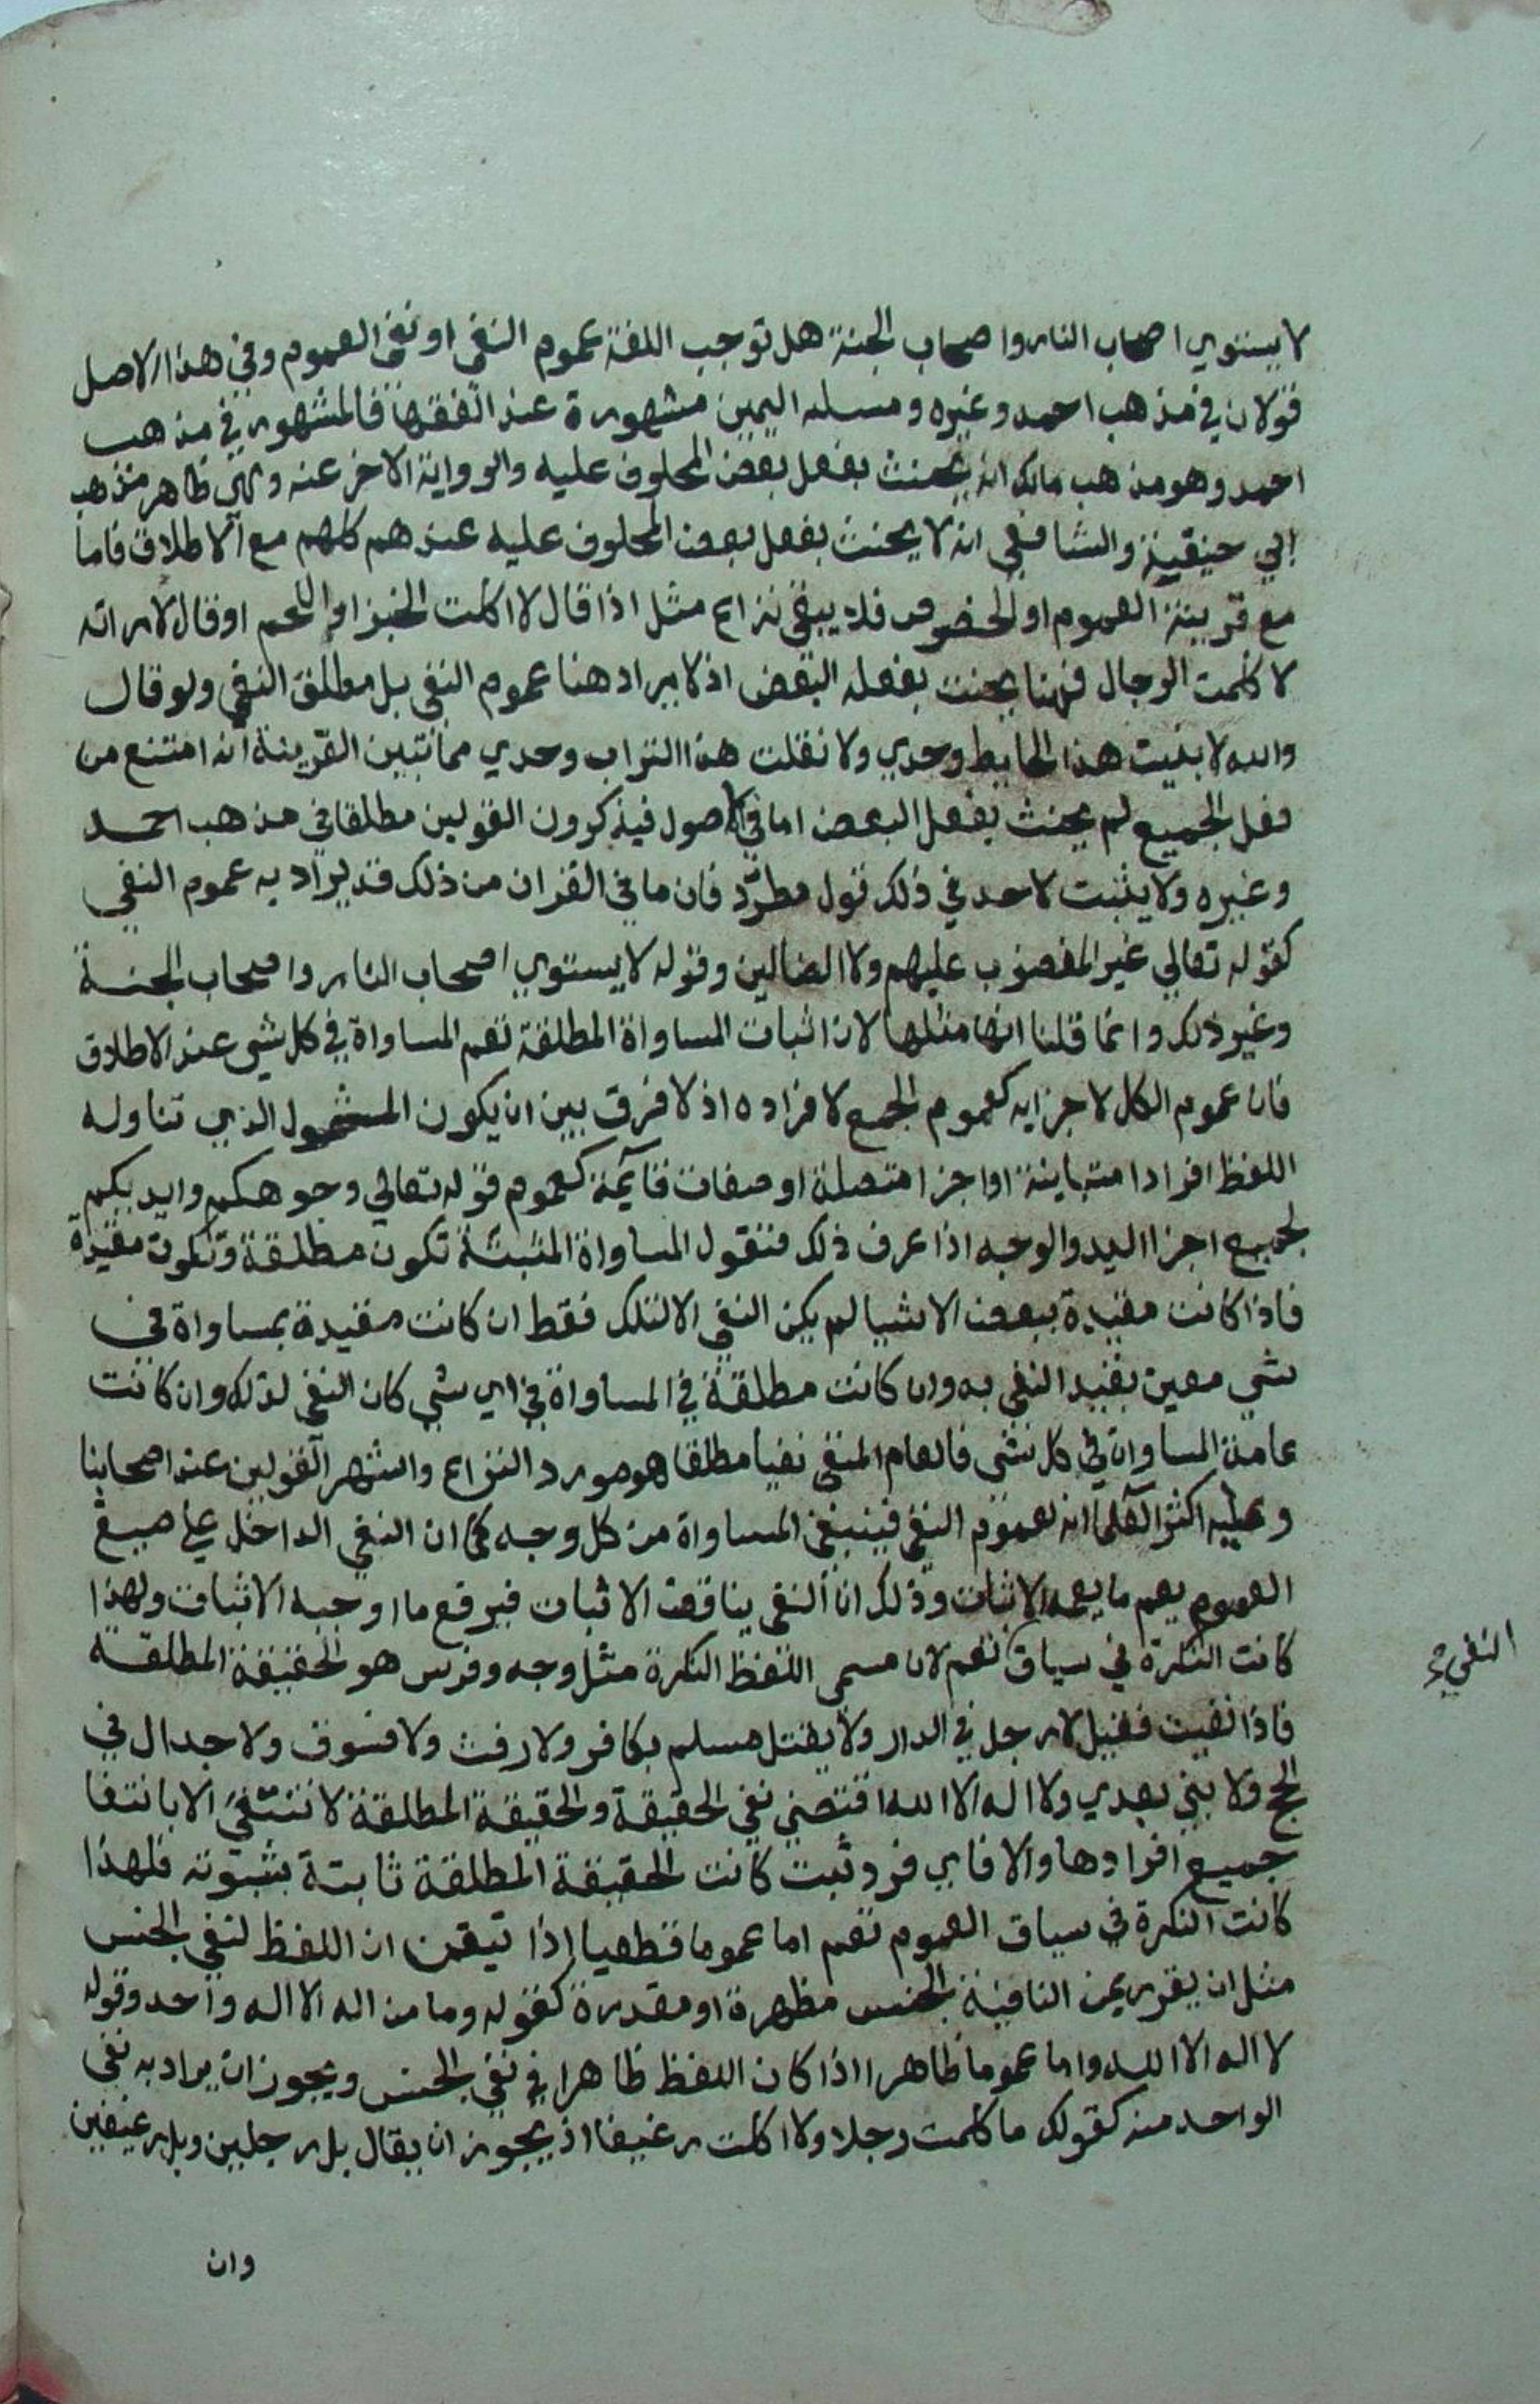 لا يستوي اصحاب النار واصحاب الجنة هل توجب اللغة عموم النفي او نفي العموم وفي هذا الاصل
قولان في مذهب احمد وغيره ومسله اليمين مشهورة عند الفقها فالمشهور في مذهب
احمد وهو مذهب مالك انه يحنث بفعل بعض المحلوف عليه والرواية الاخر عنه وهي ظاهر مذهب
ابي حنيفية والشافعي انه لا يحنث بفعل بعض المحلوف عليه عندهم كلهم مع الاطلاق فاما
مع قرينة العموم او الخصوص فلا يبقى نزاع مثل اذا قال لا اكلت الخبز او اللحم او قال لامراته
لا كلمت الرجال فهنا يحنث بفعله البعض اذ لا يراد هنا عموم النفي بل مطلق النفي ولو قال
والله لا بنيت هذا الحايط وحدي ولا نقلت هذا التراب وحدي مما تبين القرينة انه امتنع من
فعل الجميع لم يحنث بفعل البعض اما في الاصول فيذكرون القولين مطلقا في مذهب احمد
وغيره ولا يثبت لاحد في ذلك قول مطرد فان ما في القران من ذلك قد يراد به عموم النفي
كقوله تعالي غير المغضوب عليهم ولا الضالين وقوله لا يستوي اصحاب النار واصحاب الجنة
وغير ذلك وانما قلنا انها مثلها لان اثبات المساواة المطلقة تعم المساواة في كل شي عند الاطلاق
فان عموم الكل لاجزايه كعموم الجمع لافراده اذ لا فرق بين ان يكون المشمول الذي تناوله
اللفظ افرادا متباينة او اجزا متصلة او صفات قآيمة كعموم قوله تعالي وجوهكم وايديكم
لجميع اجزا اليد والوجه اذا عرف ذلك فنقول المساواة المثبتة تكون مطلقة وتكون مقيدة
فاذا كانت مقيدة ببعض الاشيا لم يكن النفي الا لتلك فقط ان كانت مقيدة بمساواة في
شي معين بقيد النفي به وان كانت مطلقة في المساواة في اي شي كان النفي لذلك وان كانت
عامة المساواة في كل شي فالعام المنفي نفيا مطلقا هو مورد النزاع واشهر القولين عند اصحابنا
وعليه اكثر العلما انه لعموم النفي فينبغي المساواة من كل وجه كما ان النفي الداخل علي صيغ
العموم يعم ما يعمه الاثبات وذلك ان النفي يناقض الاثبات فيرفع ما اوجبه الاثبات ولهذا
كانت النكرة في سياق تعم لان مسمى اللفظ النكرة مثل وجه وفرس هو الحقيقة المطلقة
النفي صح
فاذا نفيت فقيل لا رجل في الدار ولا يقتل مسلم بكافر ولا رفث ولا فسوق ولا جدال في
الحج ولا نبي بعدي ولا اله الا الله اقتضي نفي الحقيقة والحقيقة المطلقة لا تنتفي الا بانتفا
جميع افرادها والا فاي فرد ثبت كانت الحقيقة المطلقة ثابتة بثبوته فلهذا
كانت النكرة في سياق العموم تعم اما عموما قطعيا اذا تيقن ان اللفظ لنفي الجنس
مثل ان يقرن بمن النافية الجنس مظهرة او مقدرة كقوله وما من اله الا اله واحد وقوله
لا اله الا الله واما عموما ظاهرا اذا كان اللفظ ظاهرا في نفي الجنس ويجوز ان يراد به نفي
الواحد منه كقولك ما كلمت رجلا ولا اكلت رغيفا اذ يجوز ان يقال بل رجلين وبل رغيفين
وان